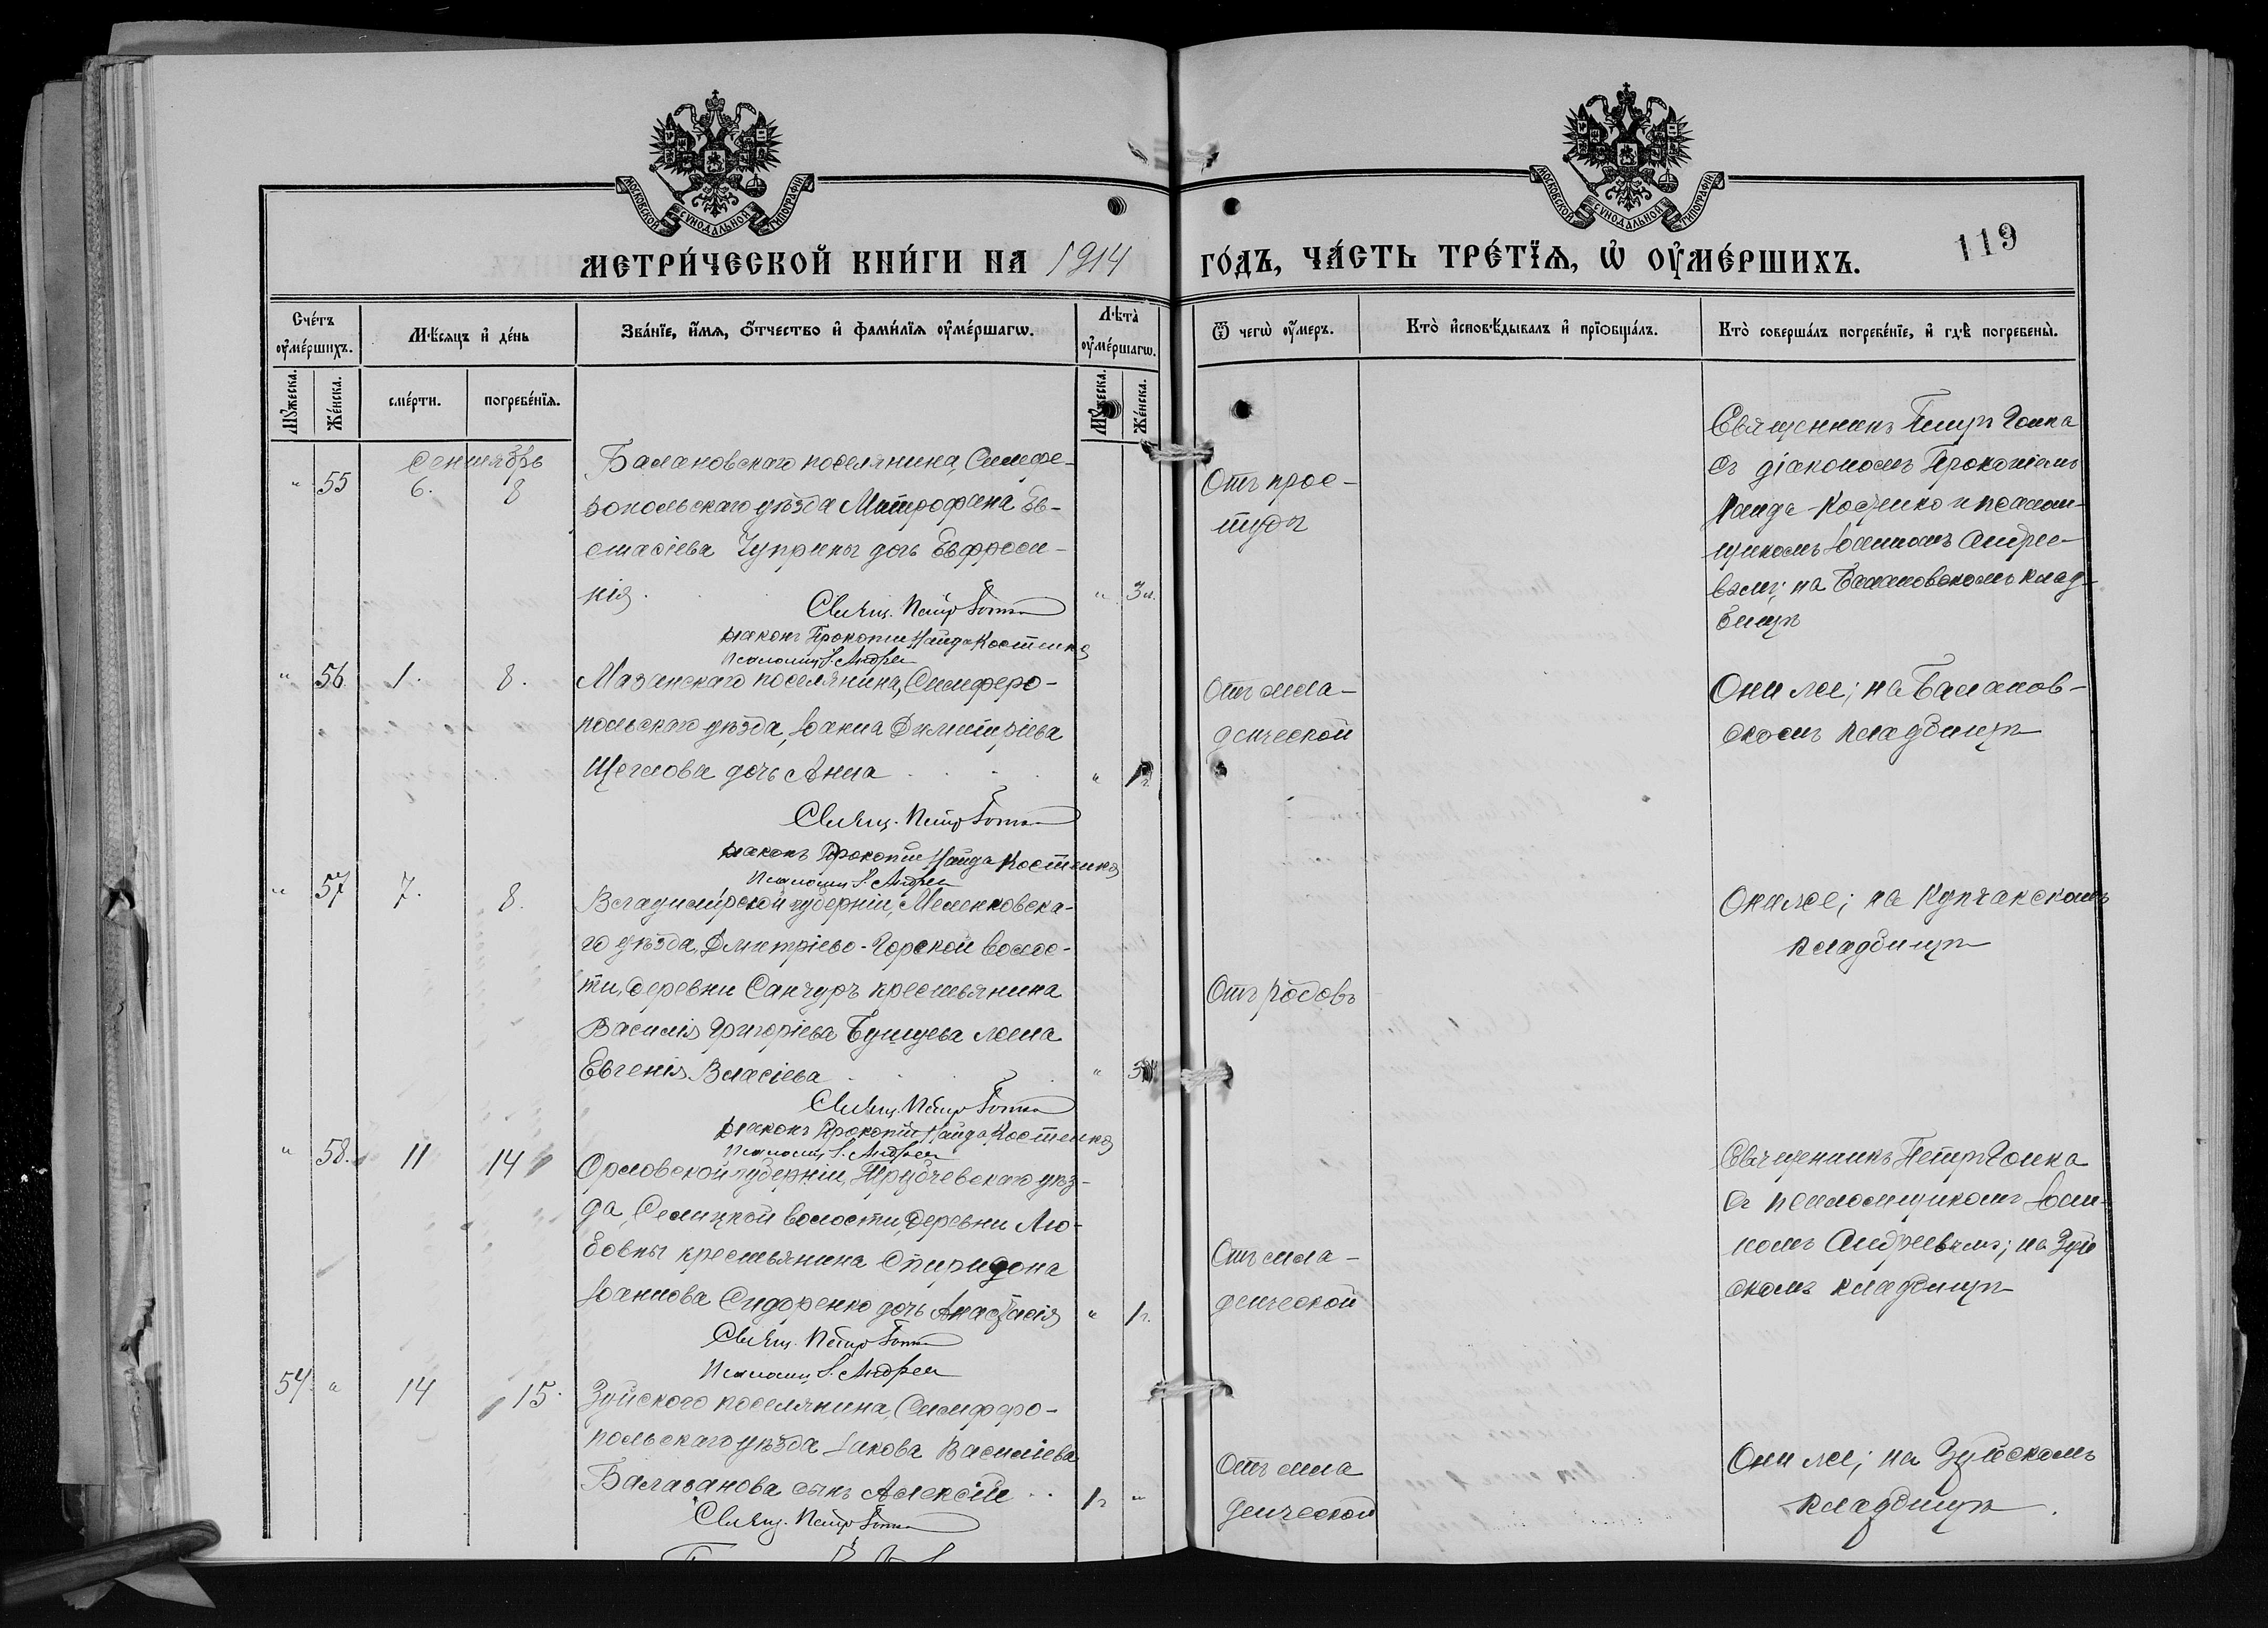 МОСКОВСКОЙ СУНОДАЛЬНОЙ ТИПОГРАФІИ
МОСКОВСКОЙ СУНОДАЛЬНОЙ ТИПОГРАФІИ
МЕТРИ́ЧЕСКОЙ КНИ́ГИ НА 1914
ГО́ДЪ, ЧА́СТЬ ТРЕ́ТЇѦ, Ѡ҆ ОУ҆МЕ́РШИХЪ.
119
Сче́тъ оу҆ме́ршихъ.
Мꙋ́жеска.
Же́нска.
Мѣ́сяцъ и҆ де́нь
сме́рти.
погребе́нїѧ.
Зва́нїе, и҆́мѧ, ѻ҆́тчество и҆ фами́лїѧ оу҆ме́ршагѡ.
Лѣ́та̀ оу҆ме́ршагѡ.
Мꙋ́жеска.
Же́нска.
Ѿ чегѡ̀ оу҆́меръ.
Кто̀ и҆сповѣ́дывалъ и҆ прїѡбща́лъ.
Кто̀ соверша́лъ погребе́нїе, и҆ гдѣ̀ погребены̀.
Сентябрь
" 55 6. 8
Балановскаго поселянина, Симфе-
ропольскаго уѣзда Митрофана Ев-
стасіева Чуприны дочь Евфроси-
нія. " 3 л.
Свящ. Петр Гомка
Діаконъ Прокопій Найда Костенко
Псаломщ. І. Андрее
От прос-
туды
Священникъ Петръ Гомка
съ діакономъ Прокопіемъ
Найда-Костенко и псалом-
щикомъ Іоанномъ Андрее-
вымъ; на Балановскомъ клад-
бищѣ
" 56 1. 8.
Мазанскаго поселянина, Симферо-
польскаго уѣзда, Іоанна Димитріева
Щеглова дочь Анна " 1 г.
Свящ. Петр Гомка
Діаконъ Прокопій Найда Костенко
Псаломщ. І. Андрее
Отъ мла-
денческой
Они же; на Баланов-
скомъ кладбищѣ
" 57 7. 8.
Владимірской губерніи, Меленковска-
го уѣзда, Дмитріево-Горской волос-
ти, деревни Санчуръ крестьянина
Василія Григоріева жена
Евгенія Власіева "
Свящ. Петр Гомка
Діаконъ Прокопій Найда Костенко
Псаломщ. І. Андрее
Отъ родовъ
Они же; на Купчакскомъ
кладбищѣ
" 58. 11 14
Орловской губерніи, Трубчевскаго уѣз-
да, Селицкой волости, деревни Лю-
бовны крестьянина Спиридона
Іоаннова Сидоренко дочь Анастасія " 1 г.
Свящ. Петр Гомка
Псаломщ. І. Андрее
Отъ мла-
денческой
Священникъ Петръ Гомка
съ псаломщикомъ Іоан-
номъ Андреевымъ; на Зуй
скомъ кладбищѣ
54. " 14 15.
Зуйского поселянина, Симферо-
польскаго уѣзда Іакова Василіева
Балабанова сынъ Алексій 1 г. "
Свящ. Петр Гомка
Отъ мла
денческой
Они же; на Зуйскомъ
кладбищѣ.